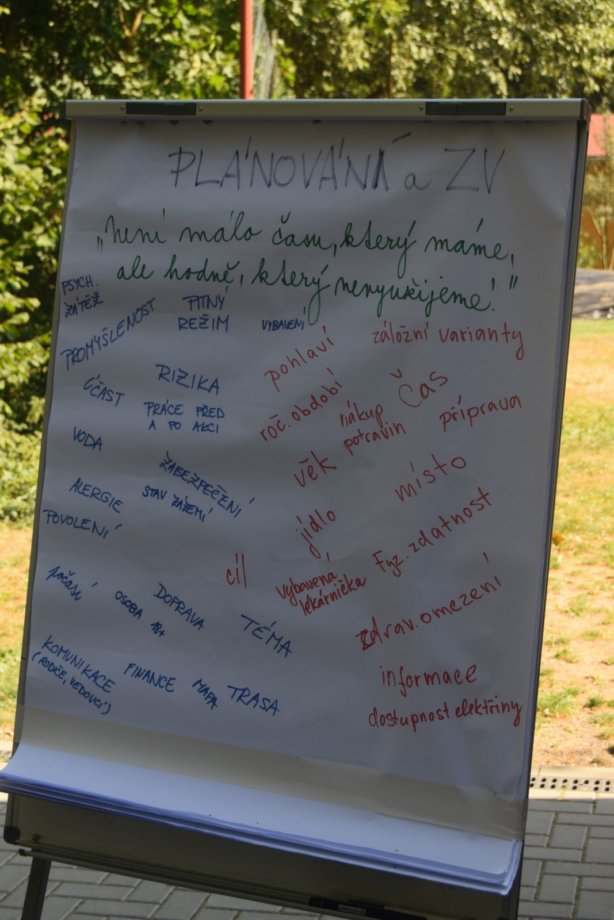 PLÁNOVÁNÍ a ZV
„Není málo času, který máme,
ale hodně, který nevyužijeme!"
PSYCH.
ZÁTĚŽ
PROMYŠLENOST
PITNÝ
REŽIM
VYBAVENÍ
ÚČAST
RIZIKA
PRÁCE PŘED
A PO AKCI
VODA
ZABEZPEČENÍ
STAV ZÁZEMÍ
ALERGIE
POVOLENÍ
počasí
OSOBA
18+
DOPRAVA
TÉMA
KOMUNIKACE
(RODIČE, VEDOUCÍ)
FINANCE
MAPA
TRASA
pohlaví
záložní varianty
roč. období
nákup
potravin
Čas
příprava
věk
místo
jídlo
cíl
Vybavená
lékárnička
Fyz. zdatnost
zdrav. omezení
informace
dostupnost elektřiny